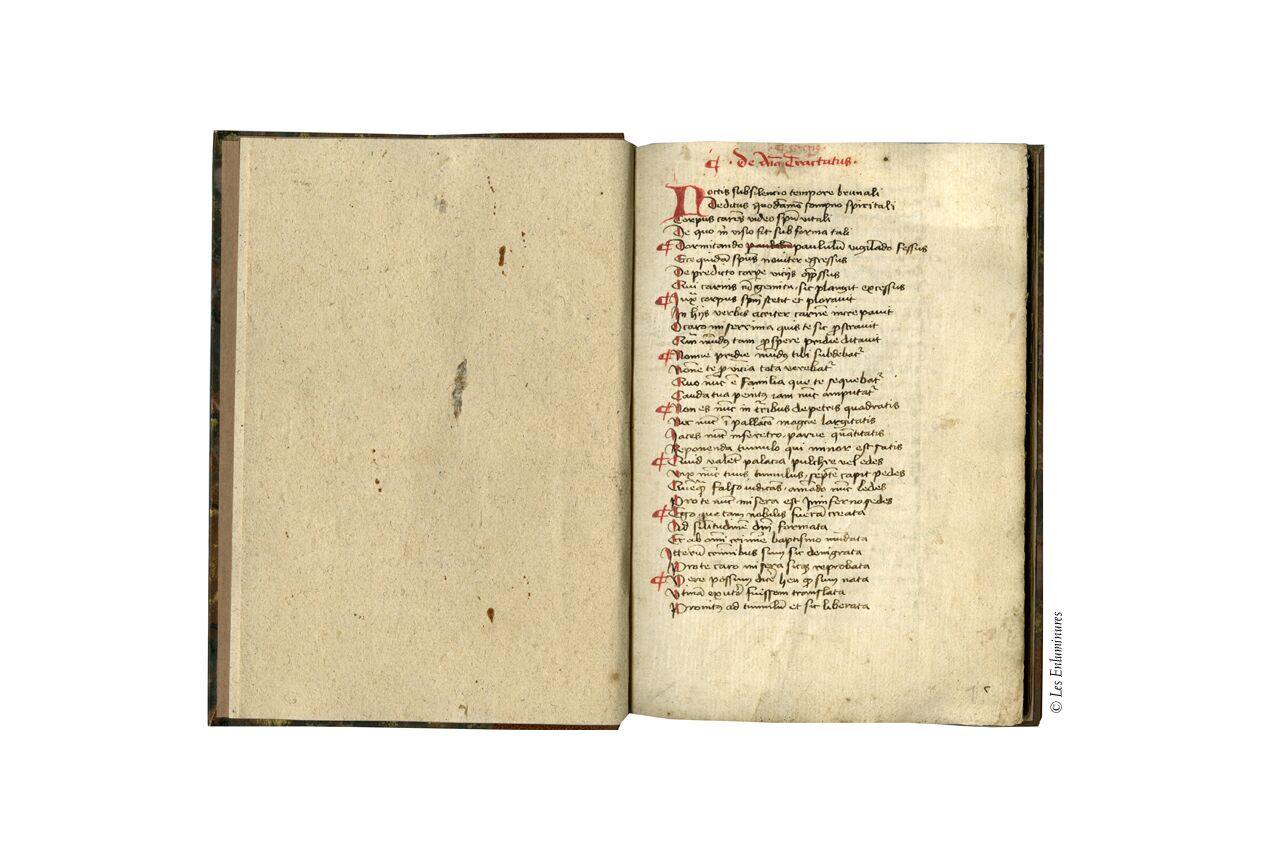 De Tractatus
Noctis sub silencio tempore brumali
Deditus quodammo sompno spiritali
Corpus carens video spūs vitali
De quo m̄ visio fit sub forma tali
Dormitando paululū vigilādo fessus
Ecce quidā spūs noviter egressus
De predicto corpe viciis opp̄ssus
Qui carnis cū gemitu sic plangit excessus
Iuxᵃ corpus spūs stetit et ploravit
In hijs verbis acriter carnē increpavit
O caro miserrima quis te sic p̄stravit
Quā mūdus tam p̄spere pridie ditavit
Nonne pridie mūdus tibi subdebatʳ
Nōne te p̄vincia tota verebatʳ
Quo nūc ē familia que te sequebatʳ
Cauda tua penitus iam nūc amputatʳ
Non es nūc in tʳribus de petris quadratis
Nec nūc ī pallacio magne largitatis
Iaces nūc in feretro parve quātitatis
Reponenda tumulo qui minor est satis
Quid valēt palacia pulchre vel edes
Vix nūc tuus tumulus septē capit pedes
Quēqʒ falso iudicās amodo nūc ledes
Pro te nūc misera est in inferno sedes
Ego que tam nobilis fuerā creata
Ad silitudinē dn̄i formata
Et ab omī crimīe baptismo mūdata
Iterū criminibus sum sic denigrata
Pro te caro misera sicqʒ reprobata
Vere possum dicē heu qʒ sum nata
Utinā ex utō fuissem translata
Protinus ad tumulū et sic liberata
© Les Enluminures